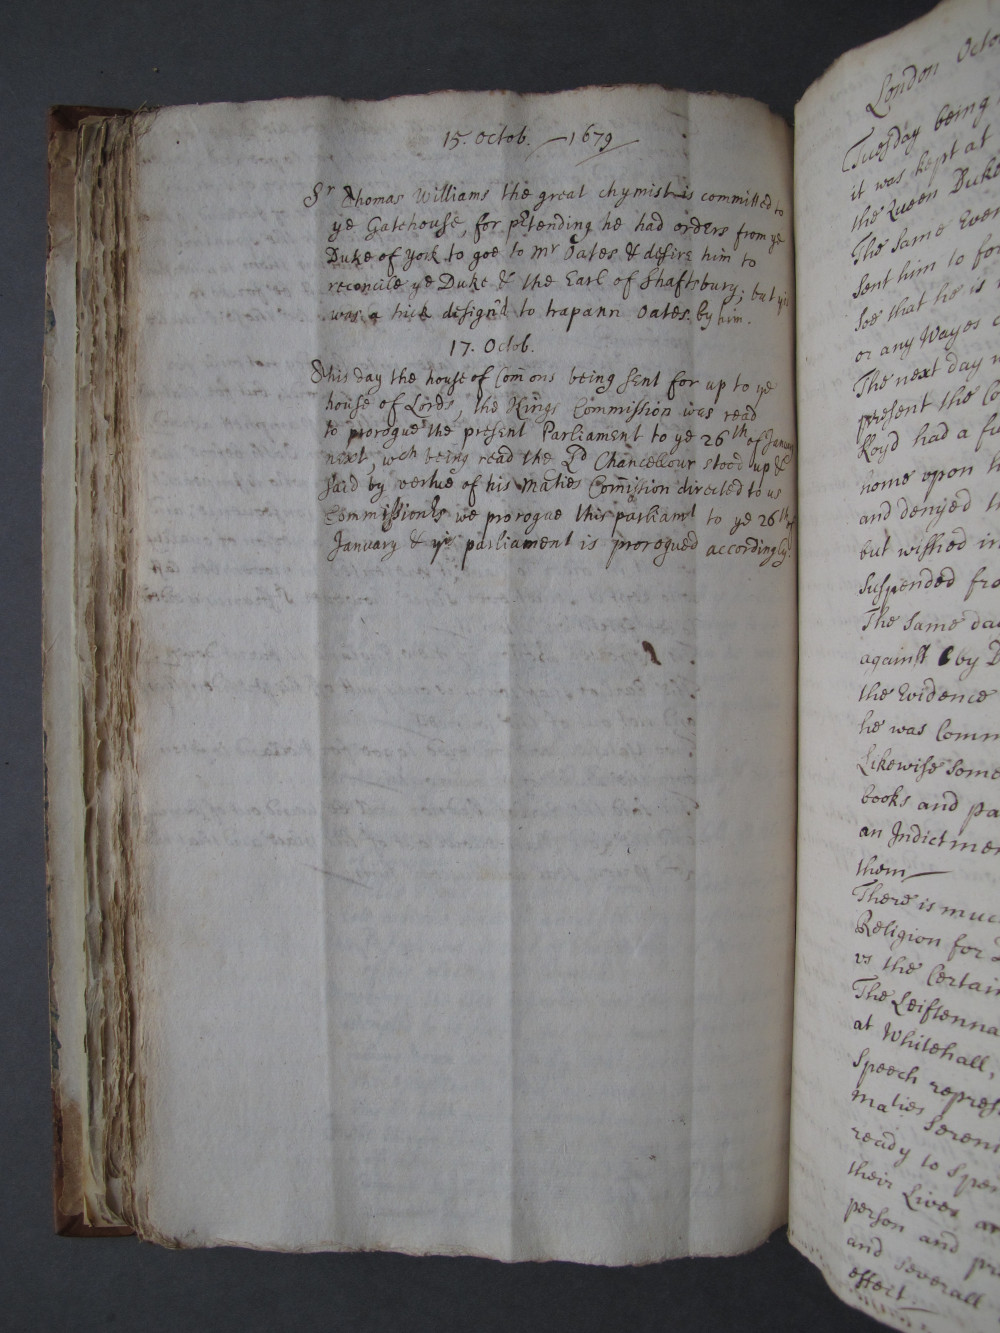 15. Octob. — 1679
Sr Thomas Williams the great chymist is committed to
ye Gatehouse, for ptending he had orders from ye
Duke of York to goe to Mr Oates & desire him to
reconcile ye Duke & the Earl of Shaftsbury; but yis
was a trick design'd to trapann Oates by him.
17. Octob.
This day the house of Comons being sent for up to ye
house of Lords, the Kings Commission was read
to prorogue the present Parliament to ye 26th of January
next, wch being read the Ld Chancellour stood up &
said by vertue of his Maties Comission directed to us
Commissionrs we prorogue this parliamt to ye 26th of
January & ys parliament is prorogued accordingly.
London Octo
Tuesday being
it was kept at
the Queen Duke
The same Even
sent him to for
soe that he is
or any Wayes
The next day
present the Co
Royd had a fu
nome upon
and denyed
but wished in
suspended fro
The same da
against by
the Evidence
he was Comm
Likewise some
books and pa
an Indictmen
them
There is muc
Religion for
vs the Certain
The Leistenna
at Whitehall,
Speech repres
Maties Seren
ready to spen
their Lives an
person and pr
and severall
effect